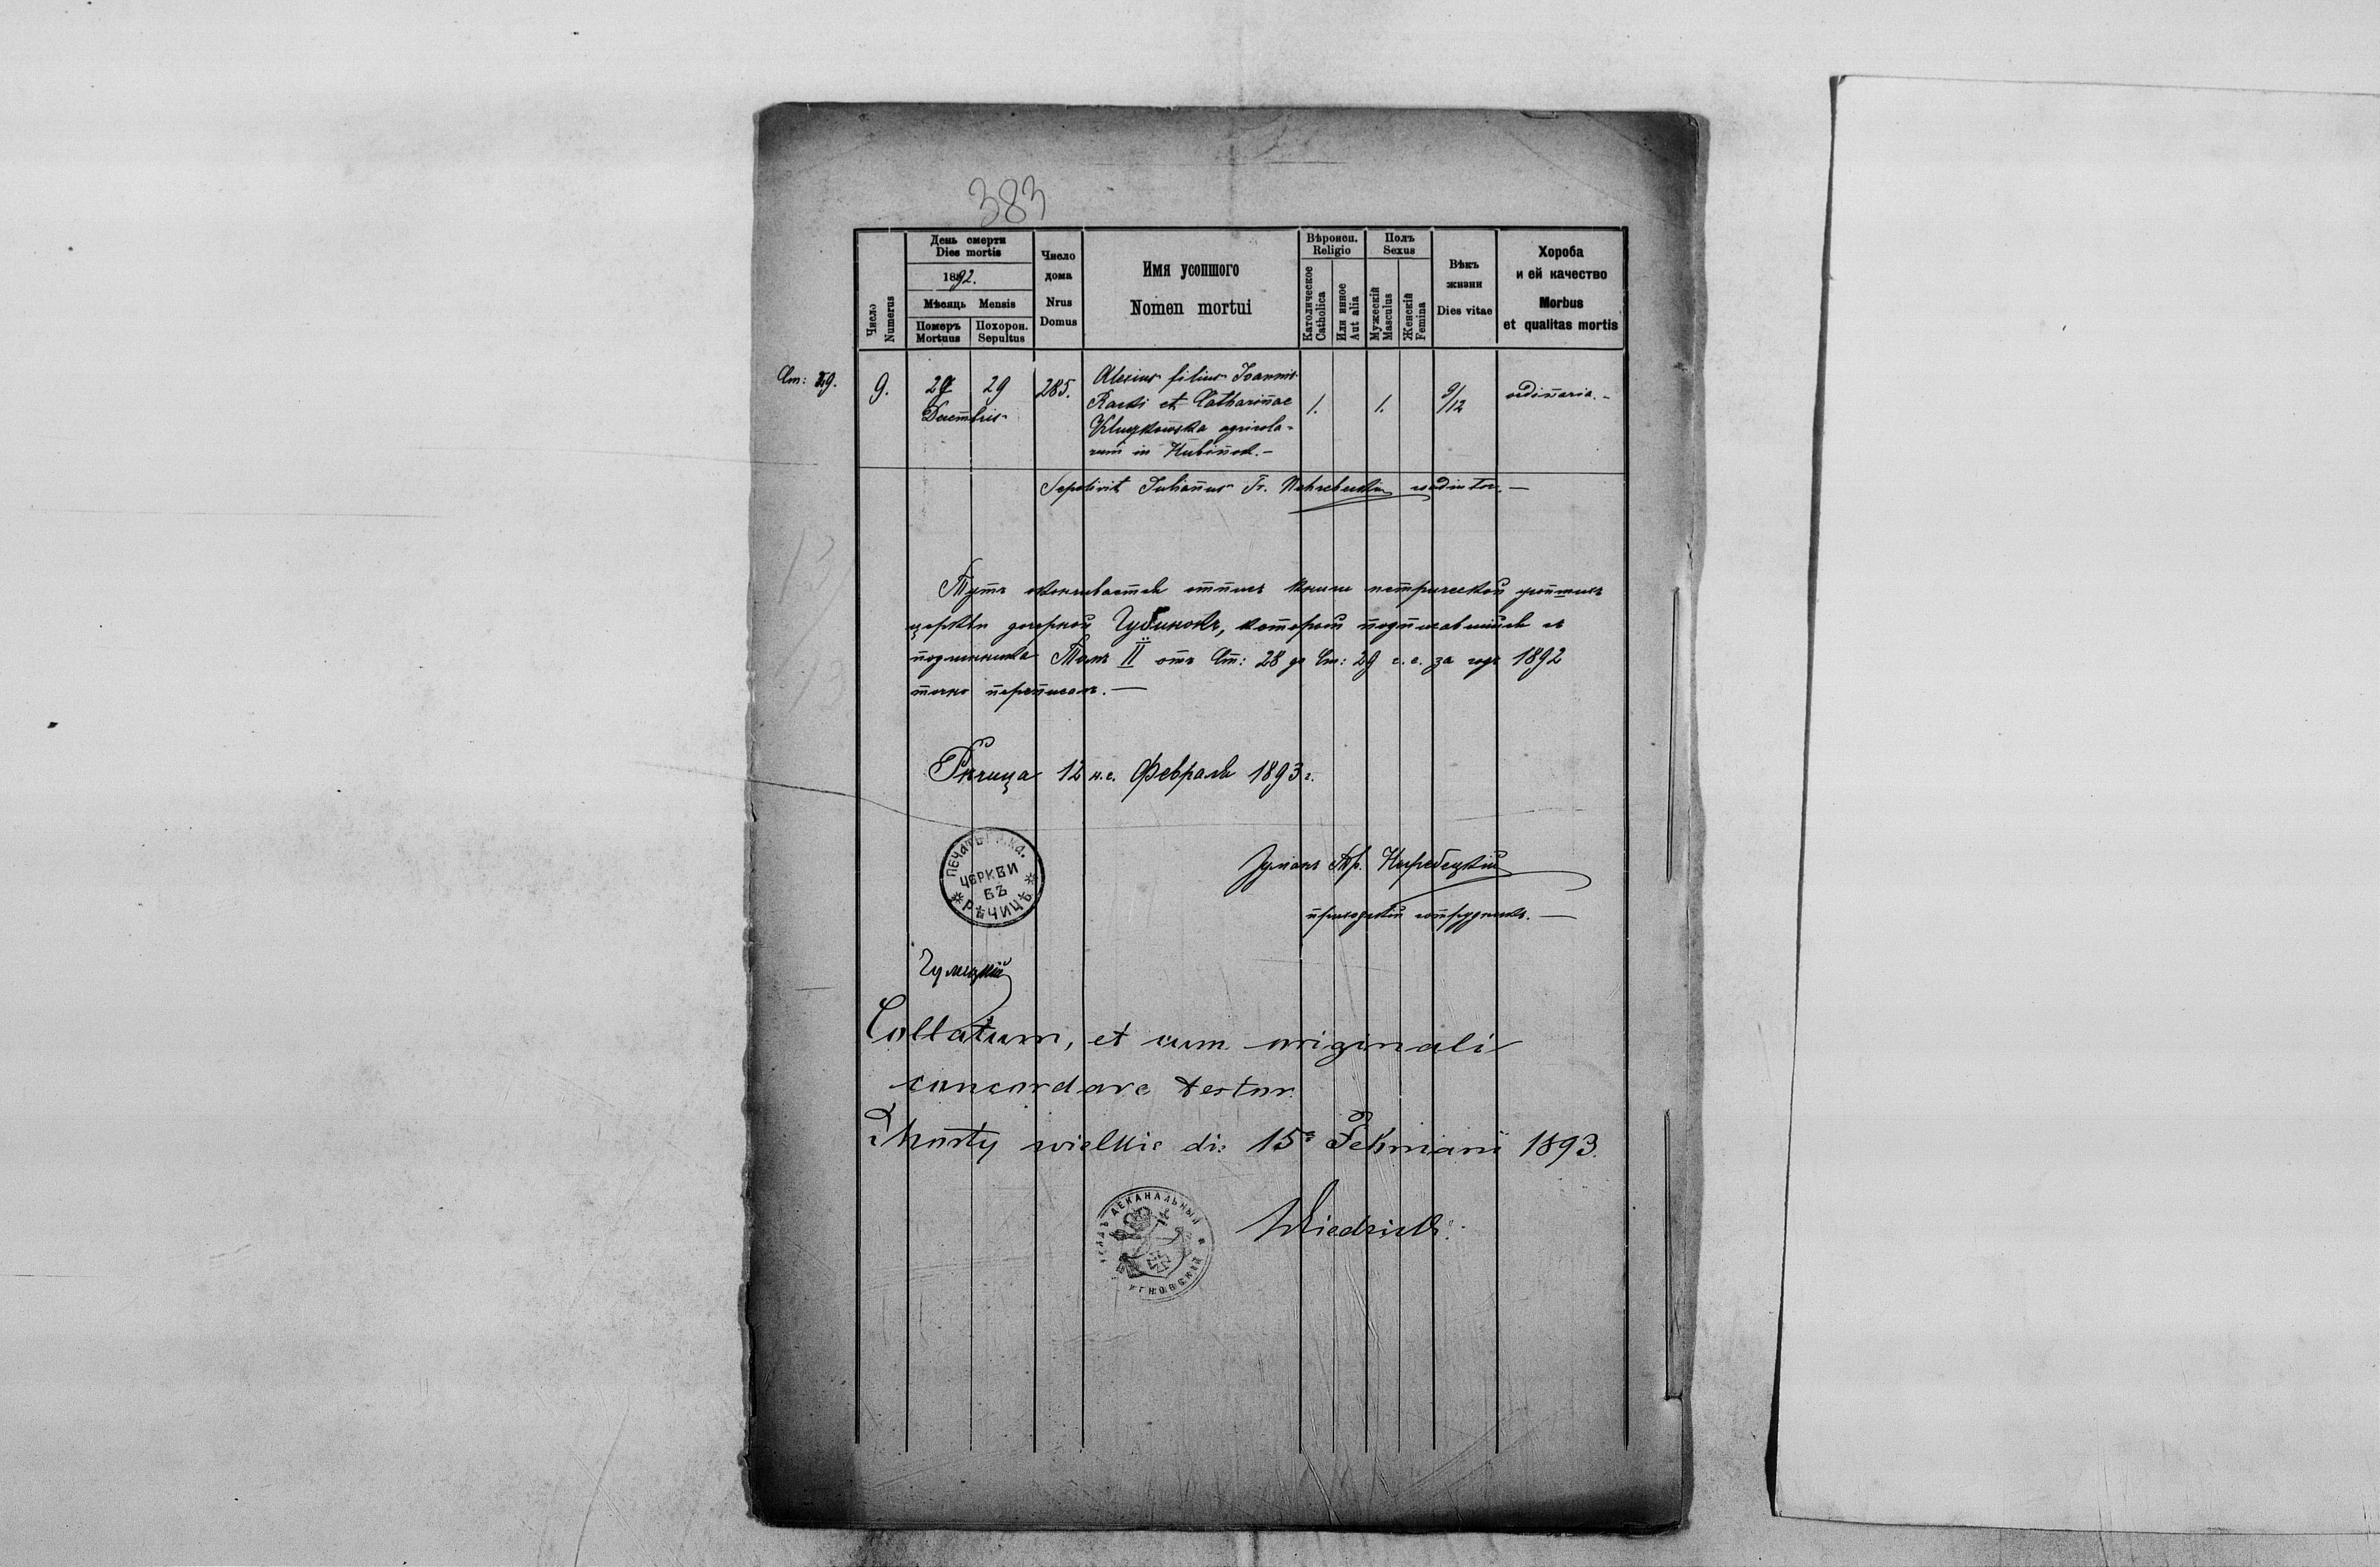 383
День смерти
Dies mortis
1892.
Мѣсяць Mensis
Число
Numerus
Померъ
Mortuus
Похорон.
Sepultus
Число
дома
Nrus
Domus
Имя усопшого
Nomen mortui
Вѣроисп.
Religio
Католическое
Catholica
Или инное
Aut alia
Полъ
Sexus
Мужескій
Masculus
Женскій
Femina
Вѣкъ
жизни
Dies vitae
Хороба
и ей качество
Morbus
et qualitas mortis
Ст: 29.
9.
29
Decembris
285.
Alexius filius Joannis
Racki et Catharinae
agricola-
rum in Hubinek.-
1.
1.
9/12
ordinaria.-
Sepelivit Julianus Fr. Nehrebecki coadiutor.—
Тутъ отпись книги метрической
церкви дочерной Губинокъ, который подписавшійся
Томъ II отъ Ст: 28 до Ст: 29 с. с. за годъ 1892
точно переписалъ.—
Рѣчица 12 н.с. Февраля 1893 г.
ПЕЧАТЬ
ЦЕРКВИ
ВЪ
РѢЧИЦѢ
Юліанъ Фр. Негребецкій
приходскій сотрудникъ.—
Collatum, et cum originali
concordare testor.
wielkie di: 15 Februarii 1893.
ДЕКАНАЛЬНЫЙ
УГНОВСКІЙ